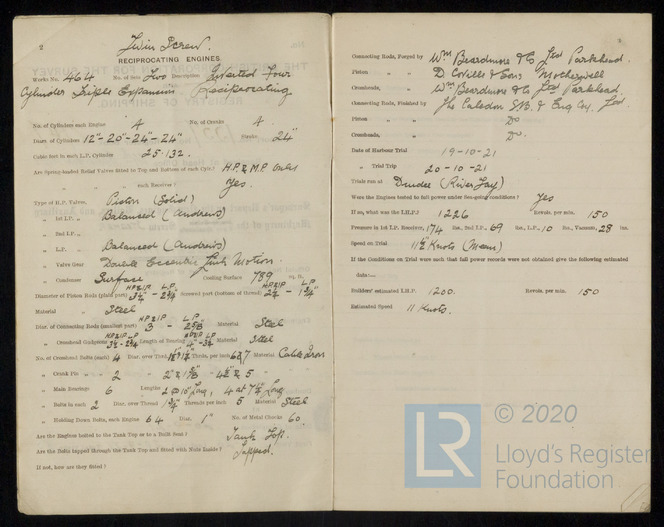 2
Twin Screw.
RECIPROCATING ENGINES.
Works No. 464 No. of Sets Two Description Inverted Four
Cylinder Triple Expansion Reciprocating
No. of Cylinders each Engine 4 No. of Cranks 4
Diars. of Cylinders 12"-20"-24"-24" Stroke 24"
Cubic feet in each L.P. Cylinder 25.132.
Are Spring-loaded Relief Valves fitted to Top and Bottom of each Cylr.? H.P. & M.P. only
„ „ each Receiver? Yes.
Type of H.P. Valves, Piston (Solid)
„ 1st I.P. „ Balanced (Andrews)
„ 2nd I.P. „
„ L.P. „ Balanced (Andrews)
„ Valve Gear Double Eccentric Link Motion.
„ Condenser Surface Cooling Surface 789 sq. ft.
Diameter of Piston Rods (plain part) Screwed part (bottom of thread)
Material Steel
Diar. of Connecting Rods (smallest part) 3 - Material Steel
„ Crosshead Gudgeons Length of Bearing Material Steel
No. of Crosshead Bolts (each) 4 Diar. over Thrd. Thrds. per inch 6 & 7 Material
„ Crank Pin „ 2 „ „ 4½ & 5 „
„ Main Bearings 6 Lengths 2 @ 10" Long, 4 at 7½" Long
„ Bolts in each 2 Diar. over Thread 1¾" Threads per inch 5 Material Steel
„ Holding Down Bolts, each Engine 64 Diar. 1" No. of Metal Chocks 60
Are the Engines bolted to the Tank Top or to a Built Seat? Tank Top.
Are the Bolts tapped through the Tank Top and fitted with Nuts Inside? Tapped.
If not, how are they fitted?
3
Connecting Rods, Forged by Wm. Beardmore & Co Ltd Parkhead.
Piston „ D. Colville & Sons Motherwell
Crossheads, „ Wm. Beardmore & Co Ltd Parkhead.
Connecting Rods, Finished by The Caledon S.B. & Eng Coy. Ltd
Piston „ Do
Crossheads, „ Do.
Date of Harbour Trial 19-10-21
„ Trial Trip 20-10-21
Trials run at Dundee (River Tay)
Were the Engines tested to full power under Sea-going conditions? Yes
If so, what was the I.H.P.? 1226 Revols. per min. 150
Pressure in 1st I.P. Receiver, 174 lbs., 2nd I.P., 69 lbs., L.P., 10 lbs., Vacuum, 28 ins.
Speed on Trial 11½ Knots (Mean)
If the Conditions on Trial were such that full power records were not obtained give the following estimated
data:—
Builders' estimated I.H.P. 1200. Revols. per min. 150
Estimated Speed 11 Knots.
© 2020
LR
Lloyd's Register
Foundation